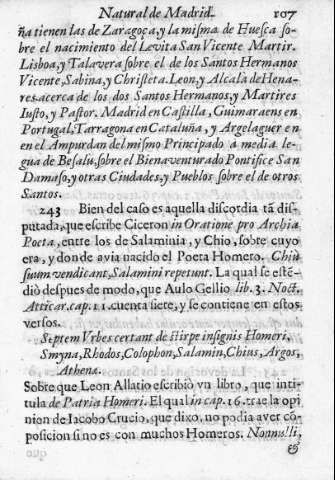 Natural de Madrid. 107
ña tienen las de Zaragoça, y la misma de Huesca so-
bre el nacimiento del Levita San Vicente Martir.
Lisboa, y Talavera sobre el de los Santos Hermanos
Vicente, Sabina, y Christeta. Leon, y Alcala de Hena-
res acerca de los dos Santos Hermanos, y Martires
Iusto, y Pastor. Madrid en Castilla, Guimaraens en
Portugal, Tarragona en Cataluña, y Argelaguer en
en el Ampurdan del mismo Principado a media le-
gua de Besalu, sobre el Bienaventurado Pontifice San
Damaso, y otras Ciudades, y Pueblos sobre el de otros
Santos.
243 Bien del caso es aquella discordia tã dis-
putada, que escribe Ciceron in Oratione pro Archia
Poeta, entre los de Salaminia, y Chio, sobre cuyo
era, y donde avia nacido el Poeta Homero. Chiũ
suum vendicant, Salamini repetunt. La qual se estẽ-
diò despues de modo, que Aulo Gellio lib. 3. Noct.
Atticar. cap. 11. cuenta siete, y se contiene en estos
versos.
Septem Vrbes certant de stirpe insignis Homeri,
Smyna, Rhodos, Colophon, Salamin, Chius, Argos,
Athenæ.
Sobre que Leon Allatio escribiò vn libro, que inti-
tula de Patria Homeri. El qual in cap. 16. trae la opi
nion de Iacobo Crucio, que dixo, no podia aver cõ-
posicion si no es con muchos Homeros. Nonnulli,